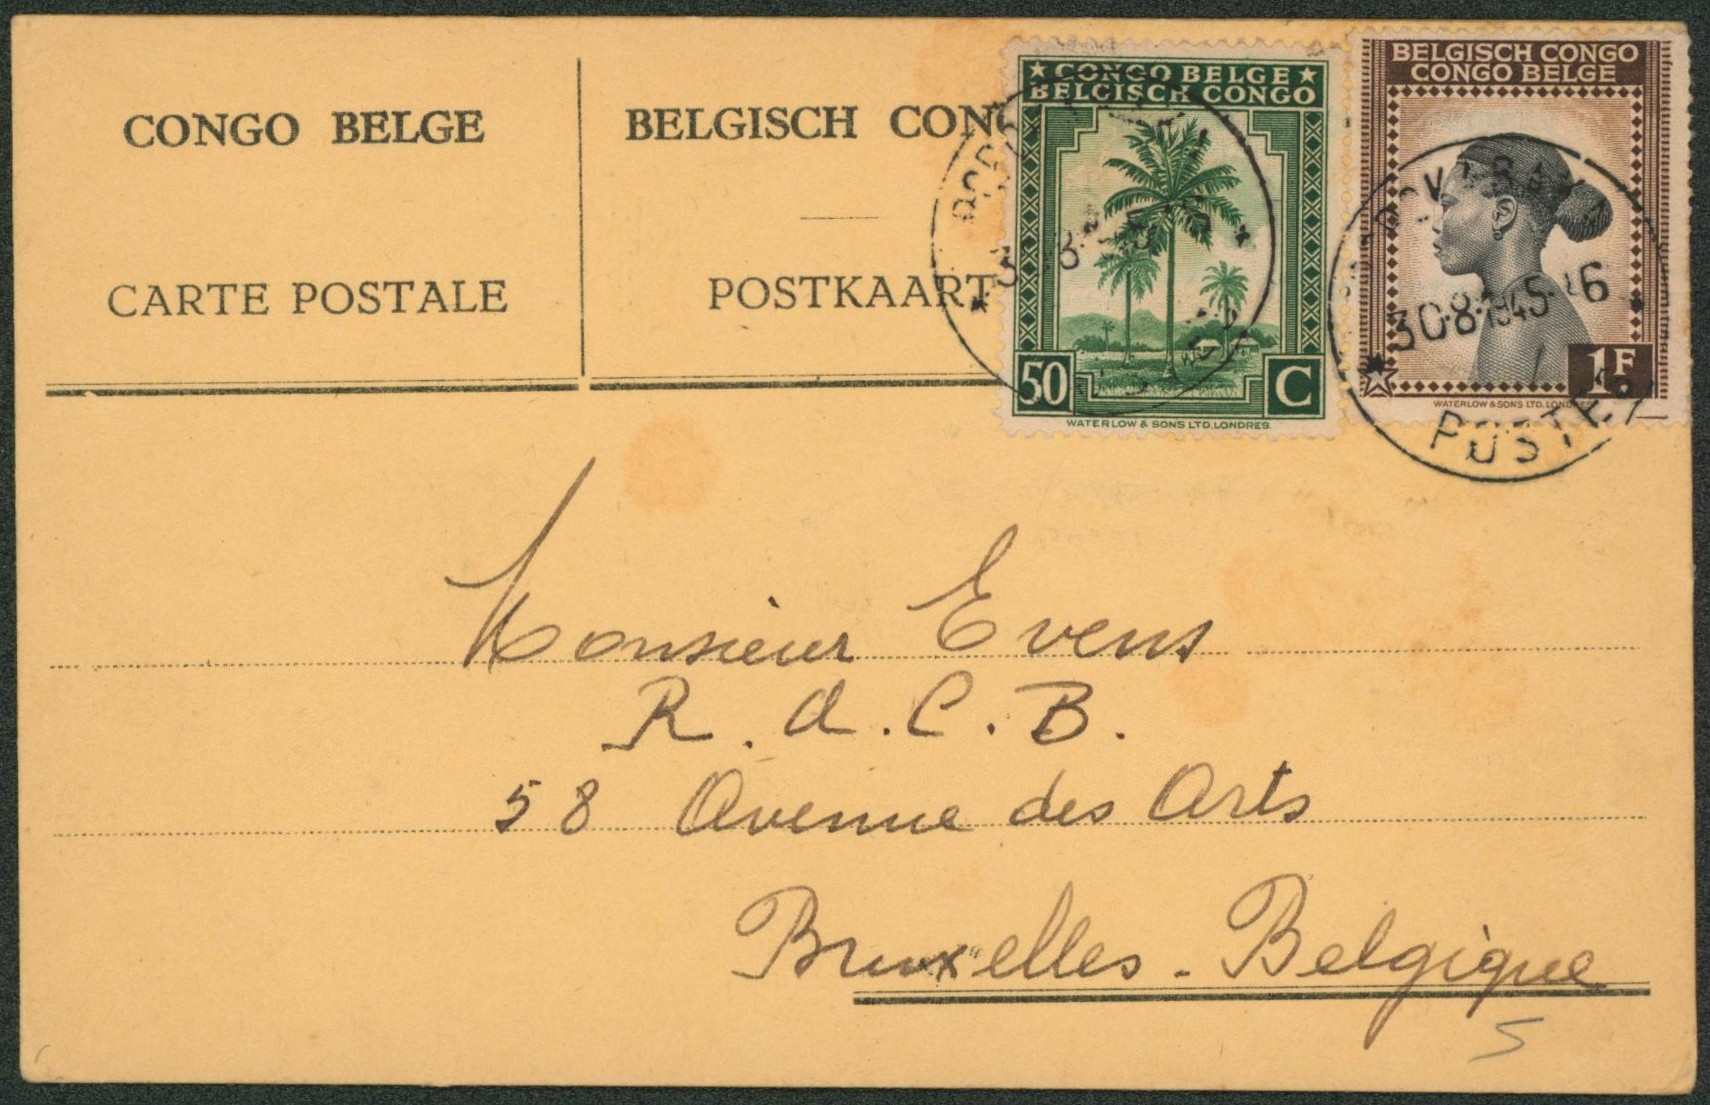 CONGO BELGE
CARTE POSTALE
BELGISCH CONG
POSTKAART
★ CONGO BELGE ★
BELGISCH CONGO
50 C
WATERLOW & SONS LTD. LONDRES.
BELGISCH CONGO
CONGO BELGE
1F
WATERLOW & SONS LTD. LONDRES
30·8·1945·16
POSTES
Monsieur Evens
R. A. C. B.
58 Avenue des Arts
Bruxelles - Belgique
5